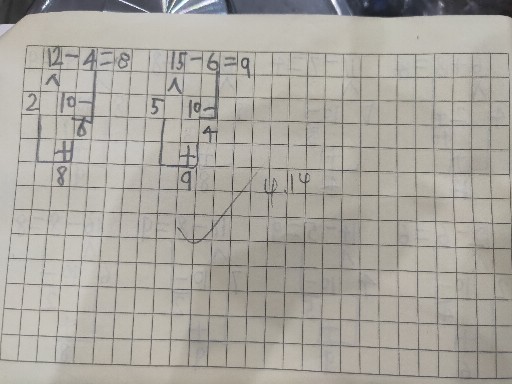 12-4=8 15-6=9
∧ ∧
2 10- 5 10-
6 4
+ +
8 9
4.14